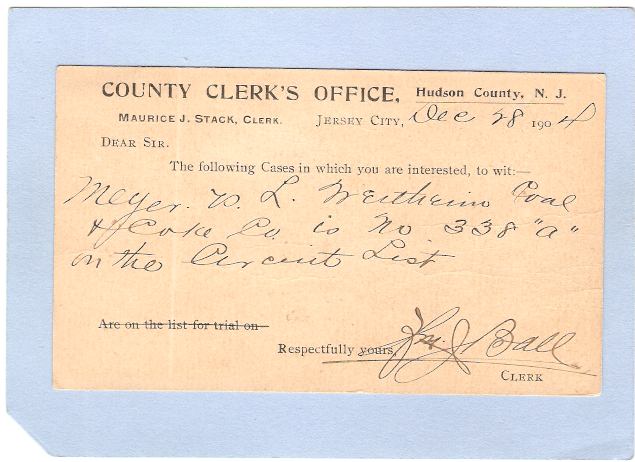 COUNTY CLERK'S OFFICE, Hudson County, N. J.
MAURICE J. STACK, CLERK. JERSEY CITY, Dec 28 1904
DEAR SIR.
The following Cases in which you are interested, to wit:—
Meyer v. L. Wertheim Coal
& Coke Co. is No 338 "a"
on the Circuit List
Are on the list for trial on
Respectfully yours, Wm J Ball
CLERK